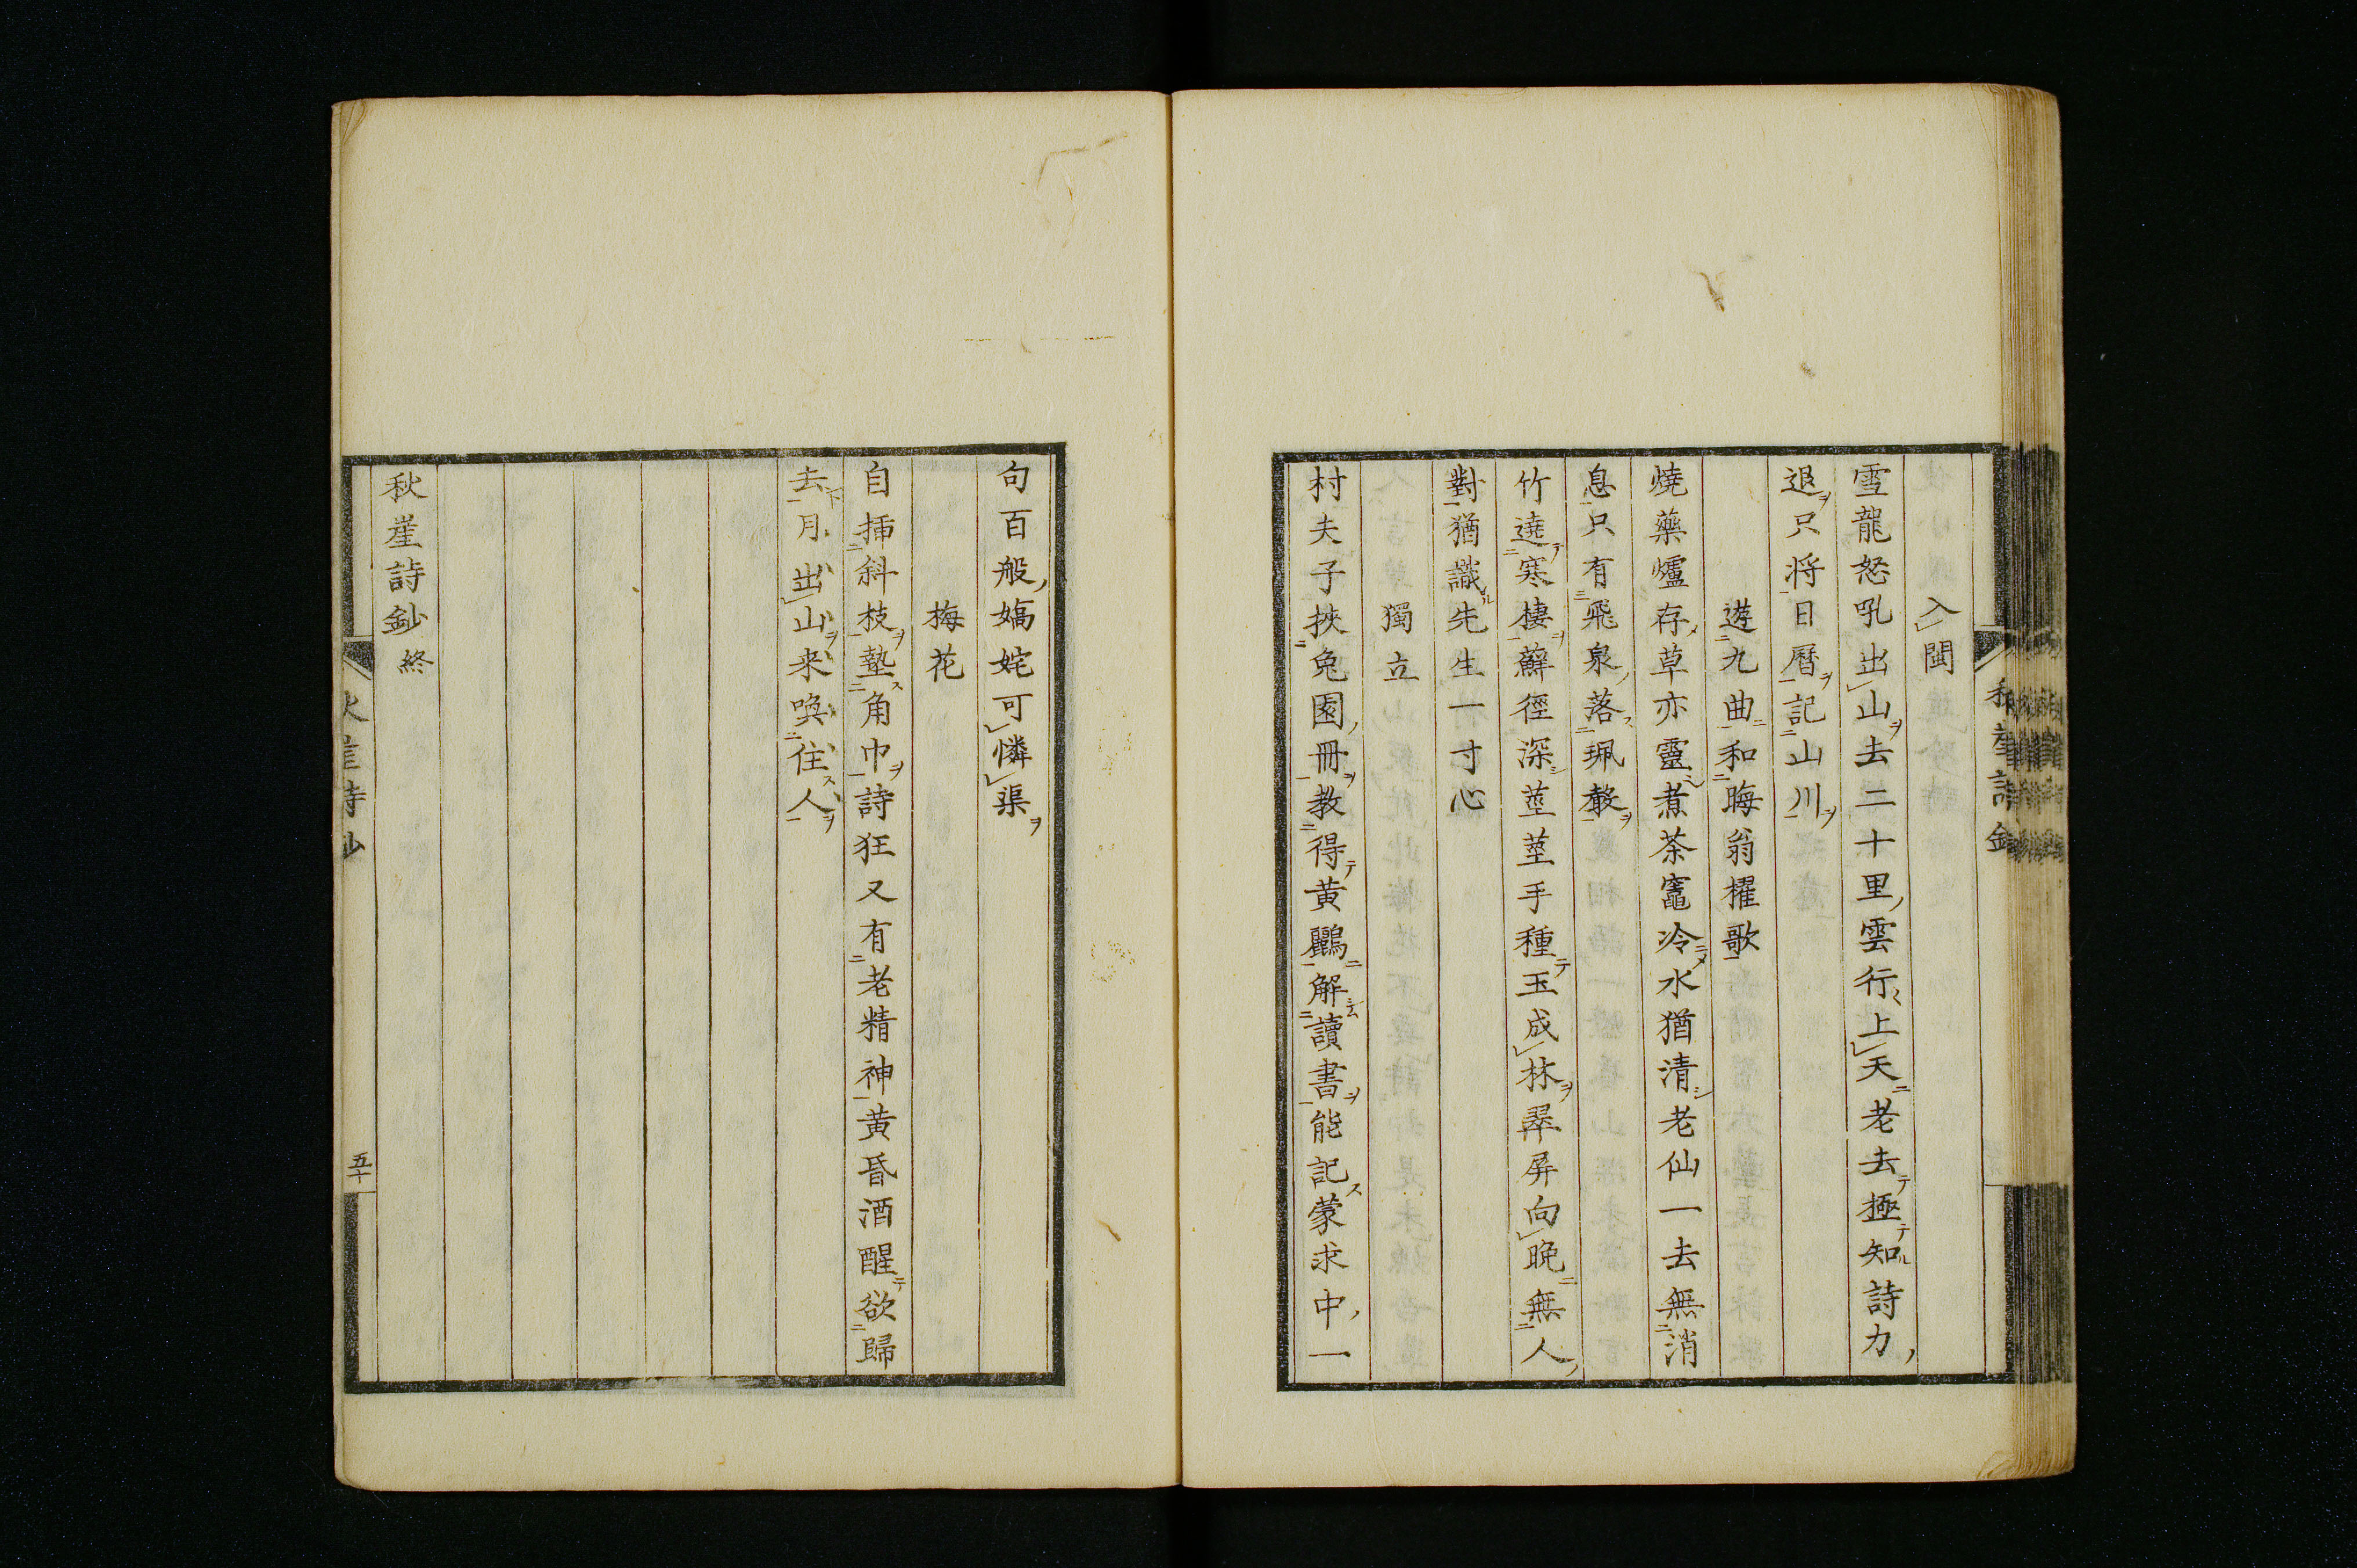 入閩
雪龍怒吼出山去二十里雲行上天老去極知詩力
退只将日暦記山川
遊九曲和晦翁櫂歌
燒藥爐存草亦靈煮茶竈冷水猶清老仙一去無消
息只有飛泉落珮聲
竹遶寒棲蘚徑深莖莖手種玉成林翠屏向晩無人
對猶識先生一寸心
獨立
村夫子挾兔園冊教得黄鸝解讀書能記蒙求中一
句百般嬌姹可憐渠
梅花
自挿斜枝墊角巾詩狂又有老精神黄昏酒醒欲歸
去月出山来喚住人
秋崖詩鈔終
秋崖詩鈔
五十